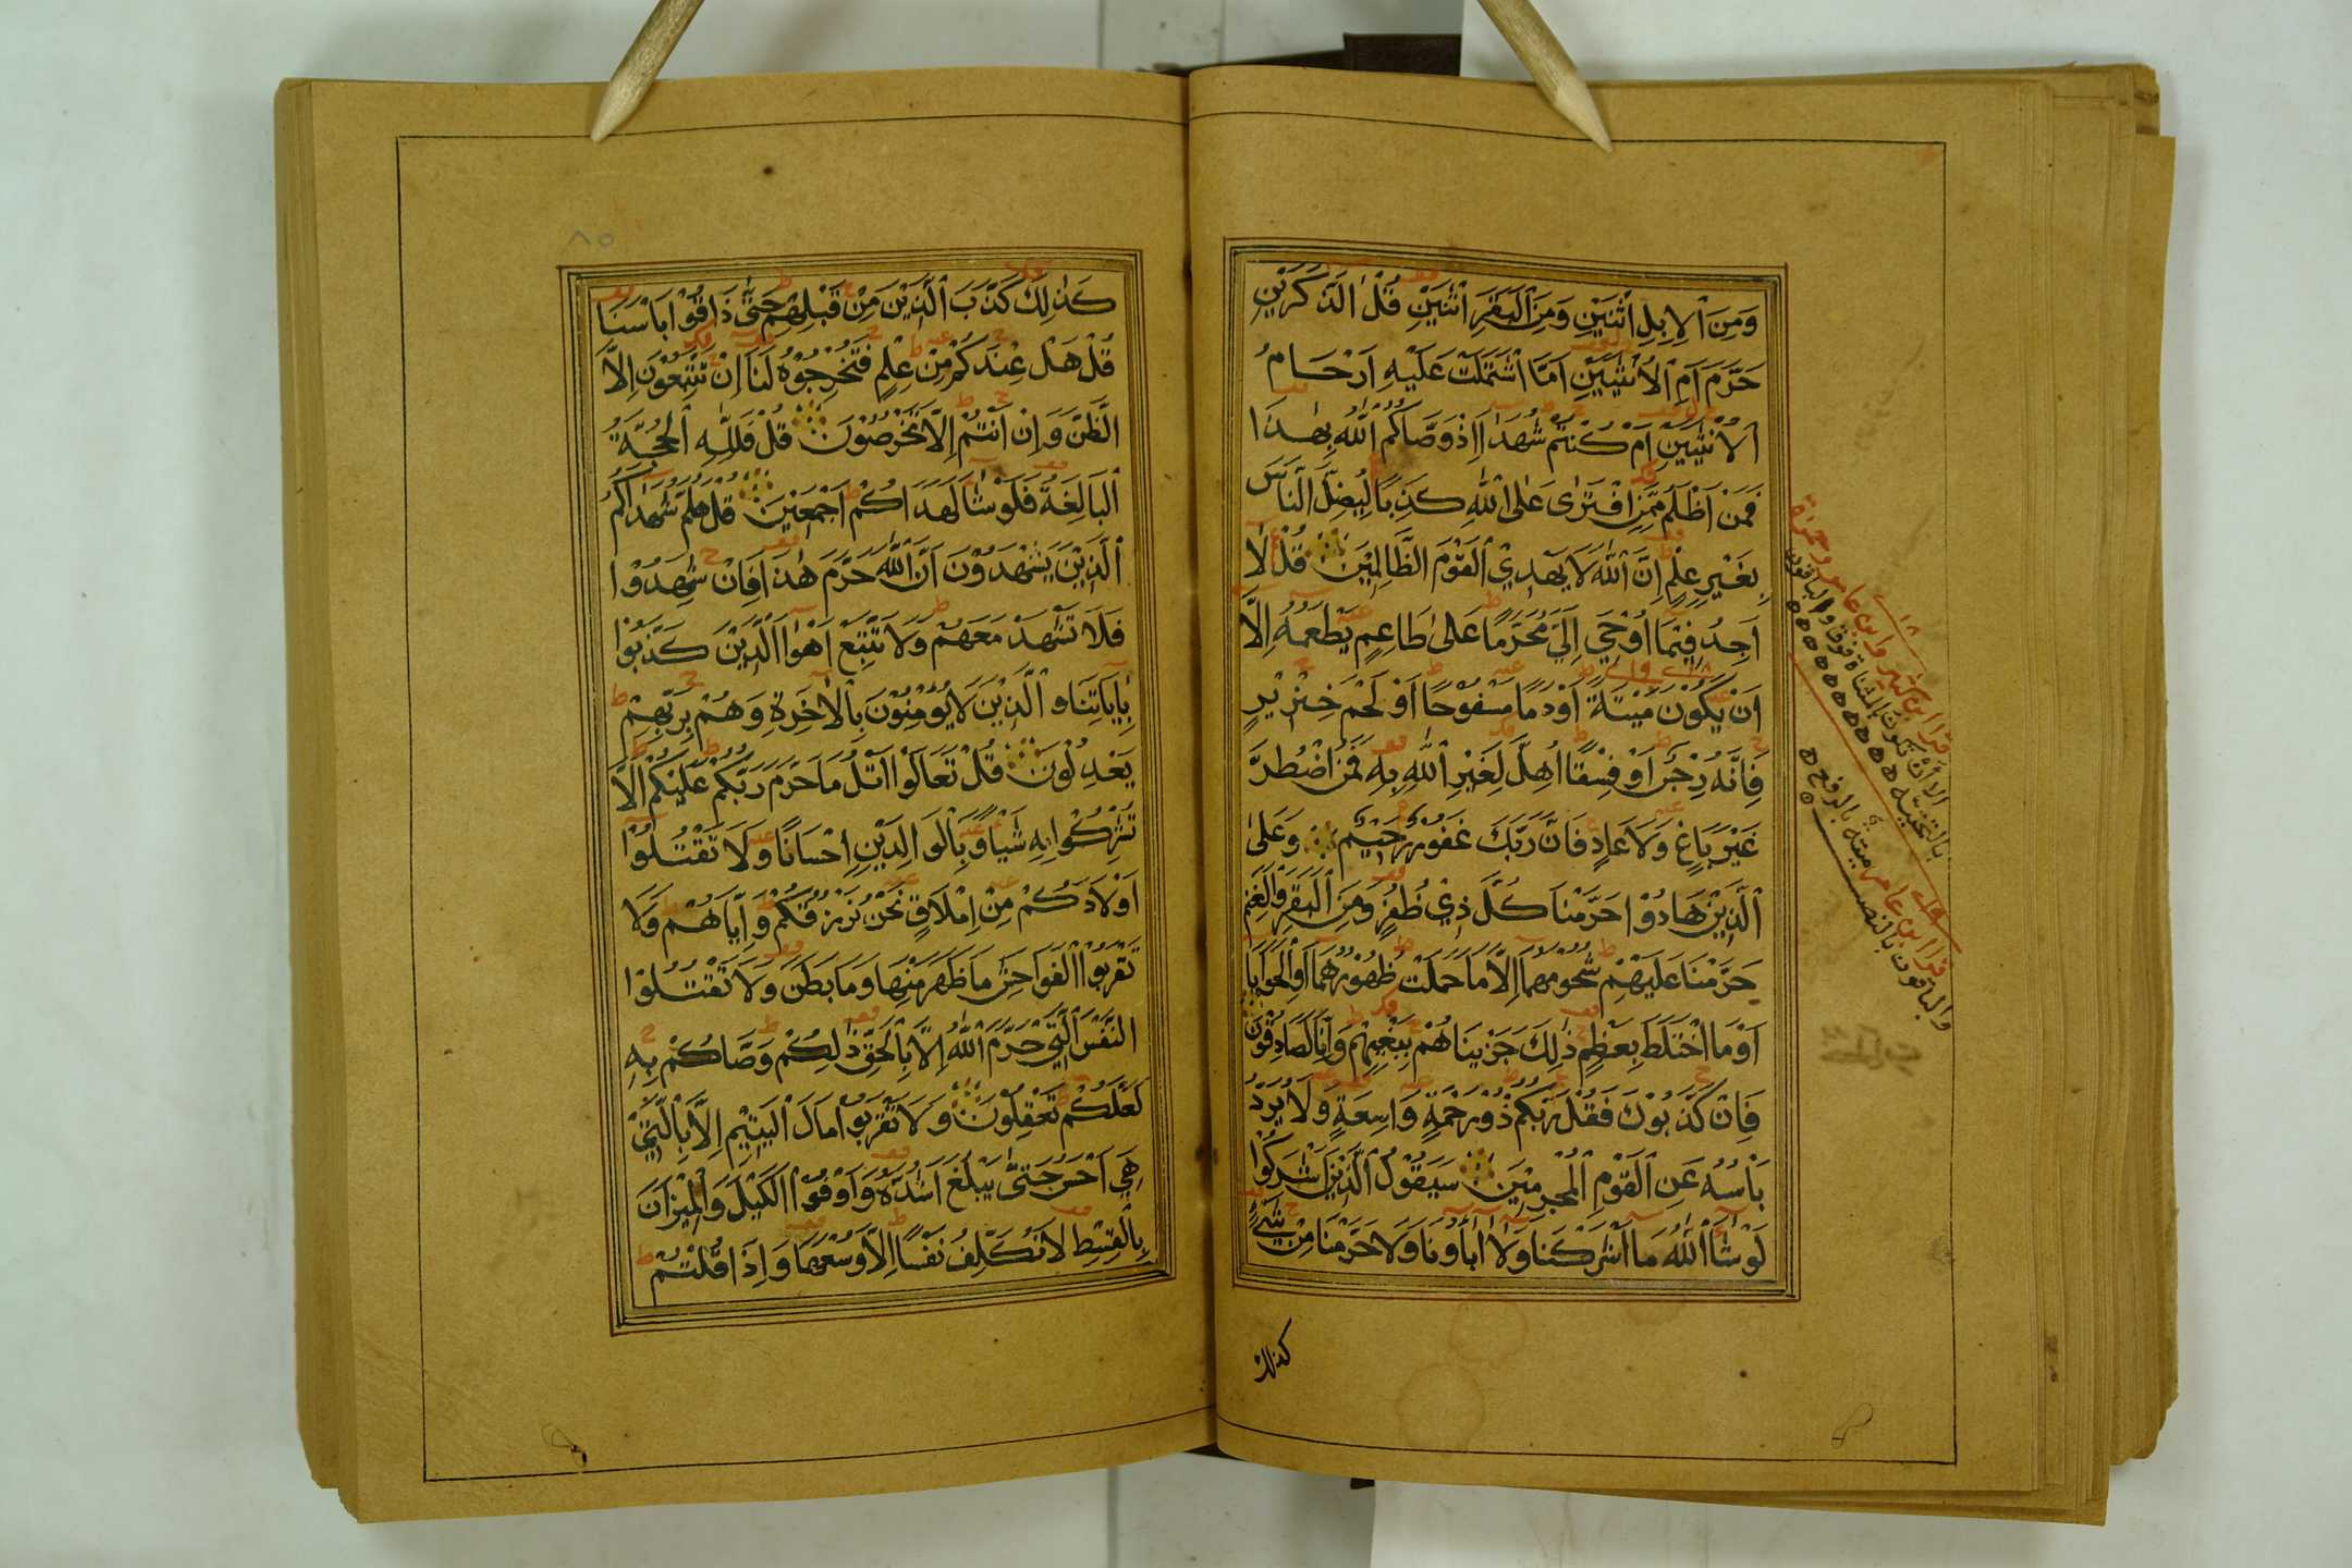 وَمِنَ ٱلْاِبِلِ ٱثْنَيْنِ وَمِنَ ٱلْبَقَرِ ٱثْنَيْنِ قُلْ الذَّكَرَيْنِ
حَرَّمَ اَمِ ٱلْاُنْثَيَيْنِ اَمَّا ٱشْتَمَلَتْ عَلَيْهِ اَرْحَامُ
ٱلْاُنْثَيَيْنِ اَمْ كُنْتُمْ شُهَدَا اِذْ وَصَّاكُمُ ٱللّٰهُ بِهٰذَا
فَمَنْ اَظْلَمُ مِمَّنِ افْتَرٰى عَلَى ٱللّٰهِ كَذِبًا لِيُضِلَّ ٱلنَّاسَ
بِغَيْرِ عِلْمٍ اِنَّ ٱللّٰهَ لَا يَهْدِي ٱلْقَوْمَ الظَّالِمِيْنَ قُلْ لَا
اَجِدُ فِيْمَا اُوْحِيَ اِلَيَّ مُحَرَّمًا عَلٰى طَاعِمٍ يَطْعَمُهُ اِلَّا
اَنْ يَكُوْنَ مَيْتَةً اَوْ دَمًا مَسْفُوْحًا اَوْ لَحْمَ خِنْزِيْرٍ
فَاِنَّهُ رِجْسٌ اَوْ فِسْقًا اُهِلَّ لِغَيْرِ ٱللّٰهِ بِهٖ فَمَنِ اضْطُرَّ
غَيْرَ بَاغٍ وَلَا عَادٍ فَاِنَّ رَبَّكَ غَفُوْرٌ رَحِيْمٌ وَعَلَى
ٱلَّذِيْنَ هَادُوْا حَرَّمْنَا كُلَّ ذِيْ ظُفُرٍ وَمِنَ ٱلْبَقَرِ وَٱلْغَنَمِ
حَرَّمْنَا عَلَيْهِمْ شُحُوْمَهُمَا اِلَّا مَا حَمَلَتْ ظُهُوْرُهُمَا اَوِ ٱلْحَوَايَا
اَوْ مَا اخْتَلَطَ بِعَظْمٍ ذٰلِكَ جَزَيْنَاهُمْ بِبَغْيِهِمْ وَاِنَّا لَصَادِقُوْنَ
فَاِنْ كَذَّبُوْكَ فَقُلْ رَبُّكُمْ ذُوْ رَحْمَةٍ وَاسِعَةٍ وَلَا يُرَدُّ
بَاْسُهُ عَنِ ٱلْقَوْمِ ٱلْمُجْرِمِيْنَ سَيَقُوْلُ ٱلَّذِيْنَ اَشْرَكُوْا
لَوْ شَا ٱللّٰهُ مَا اَشْرَكْنَا وَلَا اٰبَاوُنَا وَلَا حَرَّمْنَا مِنْ شَيْءٍ
كذلك
قرا ابن كثير وابن عامر وحمزة
الا ان تكون بالمثناة فوق والباقون
بالتحتية
قرا ابن عامر ميتة بالرفع
والباقون بالنصب
٨٥
كَذٰلِكَ كَذَّبَ ٱلَّذِيْنَ مِنْ قَبْلِهِمْ حَتّٰى ذَاقُوْا بَاْسَنَا
قُلْ هَلْ عِنْدَكُمْ مِنْ عِلْمٍ فَتُخْرِجُوْهُ لَنَا اِنْ تَتَّبِعُوْنَ اِلَّا
ٱلظَّنَّ وَاِنْ اَنْتُمْ اِلَّا تَخْرُصُوْنَ قُلْ فَلِلّٰهِ ٱلْحُجَّةُ
ٱلْبَالِغَةُ فَلَوْ شَا لَهَدَاكُمْ اَجْمَعِيْنَ قُلْ هَلُمَّ شُهَدَاكُمُ
ٱلَّذِيْنَ يَشْهَدُوْنَ اَنَّ ٱللّٰهَ حَرَّمَ هٰذَا فَاِنْ شَهِدُوْا
فَلَا تَشْهَدْ مَعَهُمْ وَلَا تَتَّبِعْ اَهْوَا ٱلَّذِيْنَ كَذَّبُوْا
بِاٰيَاتِنَا وَٱلَّذِيْنَ لَا يُؤْمِنُوْنَ بِالْاٰخِرَةِ وَهُمْ بِرَبِّهِمْ
يَعْدِلُوْنَ قُلْ تَعَالَوْا اَتْلُ مَا حَرَّمَ رَبُّكُمْ عَلَيْكُمْ اَلَّا
تُشْرِكُوْا بِهٖ شَيْـًٔا وَبِالْوَالِدَيْنِ اِحْسَانًا وَلَا تَقْتُلُوْا
اَوْلَادَكُمْ مِنْ اِمْلَاقٍ نَحْنُ نَرْزُقُكُمْ وَاِيَّاهُمْ وَلَا
تَقْرَبُوْا ٱلْفَوَاحِشَ مَا ظَهَرَ مِنْهَا وَمَا بَطَنَ وَلَا تَقْتُلُوْا
النَّفْسَ ٱلَّتِيْ حَرَّمَ ٱللّٰهُ اِلَّا بِالْحَقِّ ذٰلِكُمْ وَصَّاكُمْ بِهٖ
لَعَلَّكُمْ تَعْقِلُوْنَ وَلَا تَقْرَبُوْا مَالَ ٱلْيَتِيْمِ اِلَّا بِالَّتِيْ
هِيَ اَحْسَنُ حَتّٰى يَبْلُغَ اَشُدَّهُ وَاَوْفُوْا ٱلْكَيْلَ وَٱلْمِيْزَانَ
بِالْقِسْطِ لَا نُكَلِّفُ نَفْسًا اِلَّا وُسْعَهَا وَاِذَا قُلْتُمْ